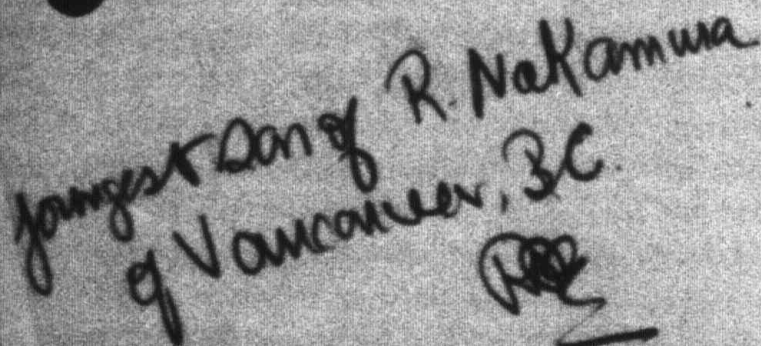 youngest son of R. Nakamura
of Vancouver, B.C.